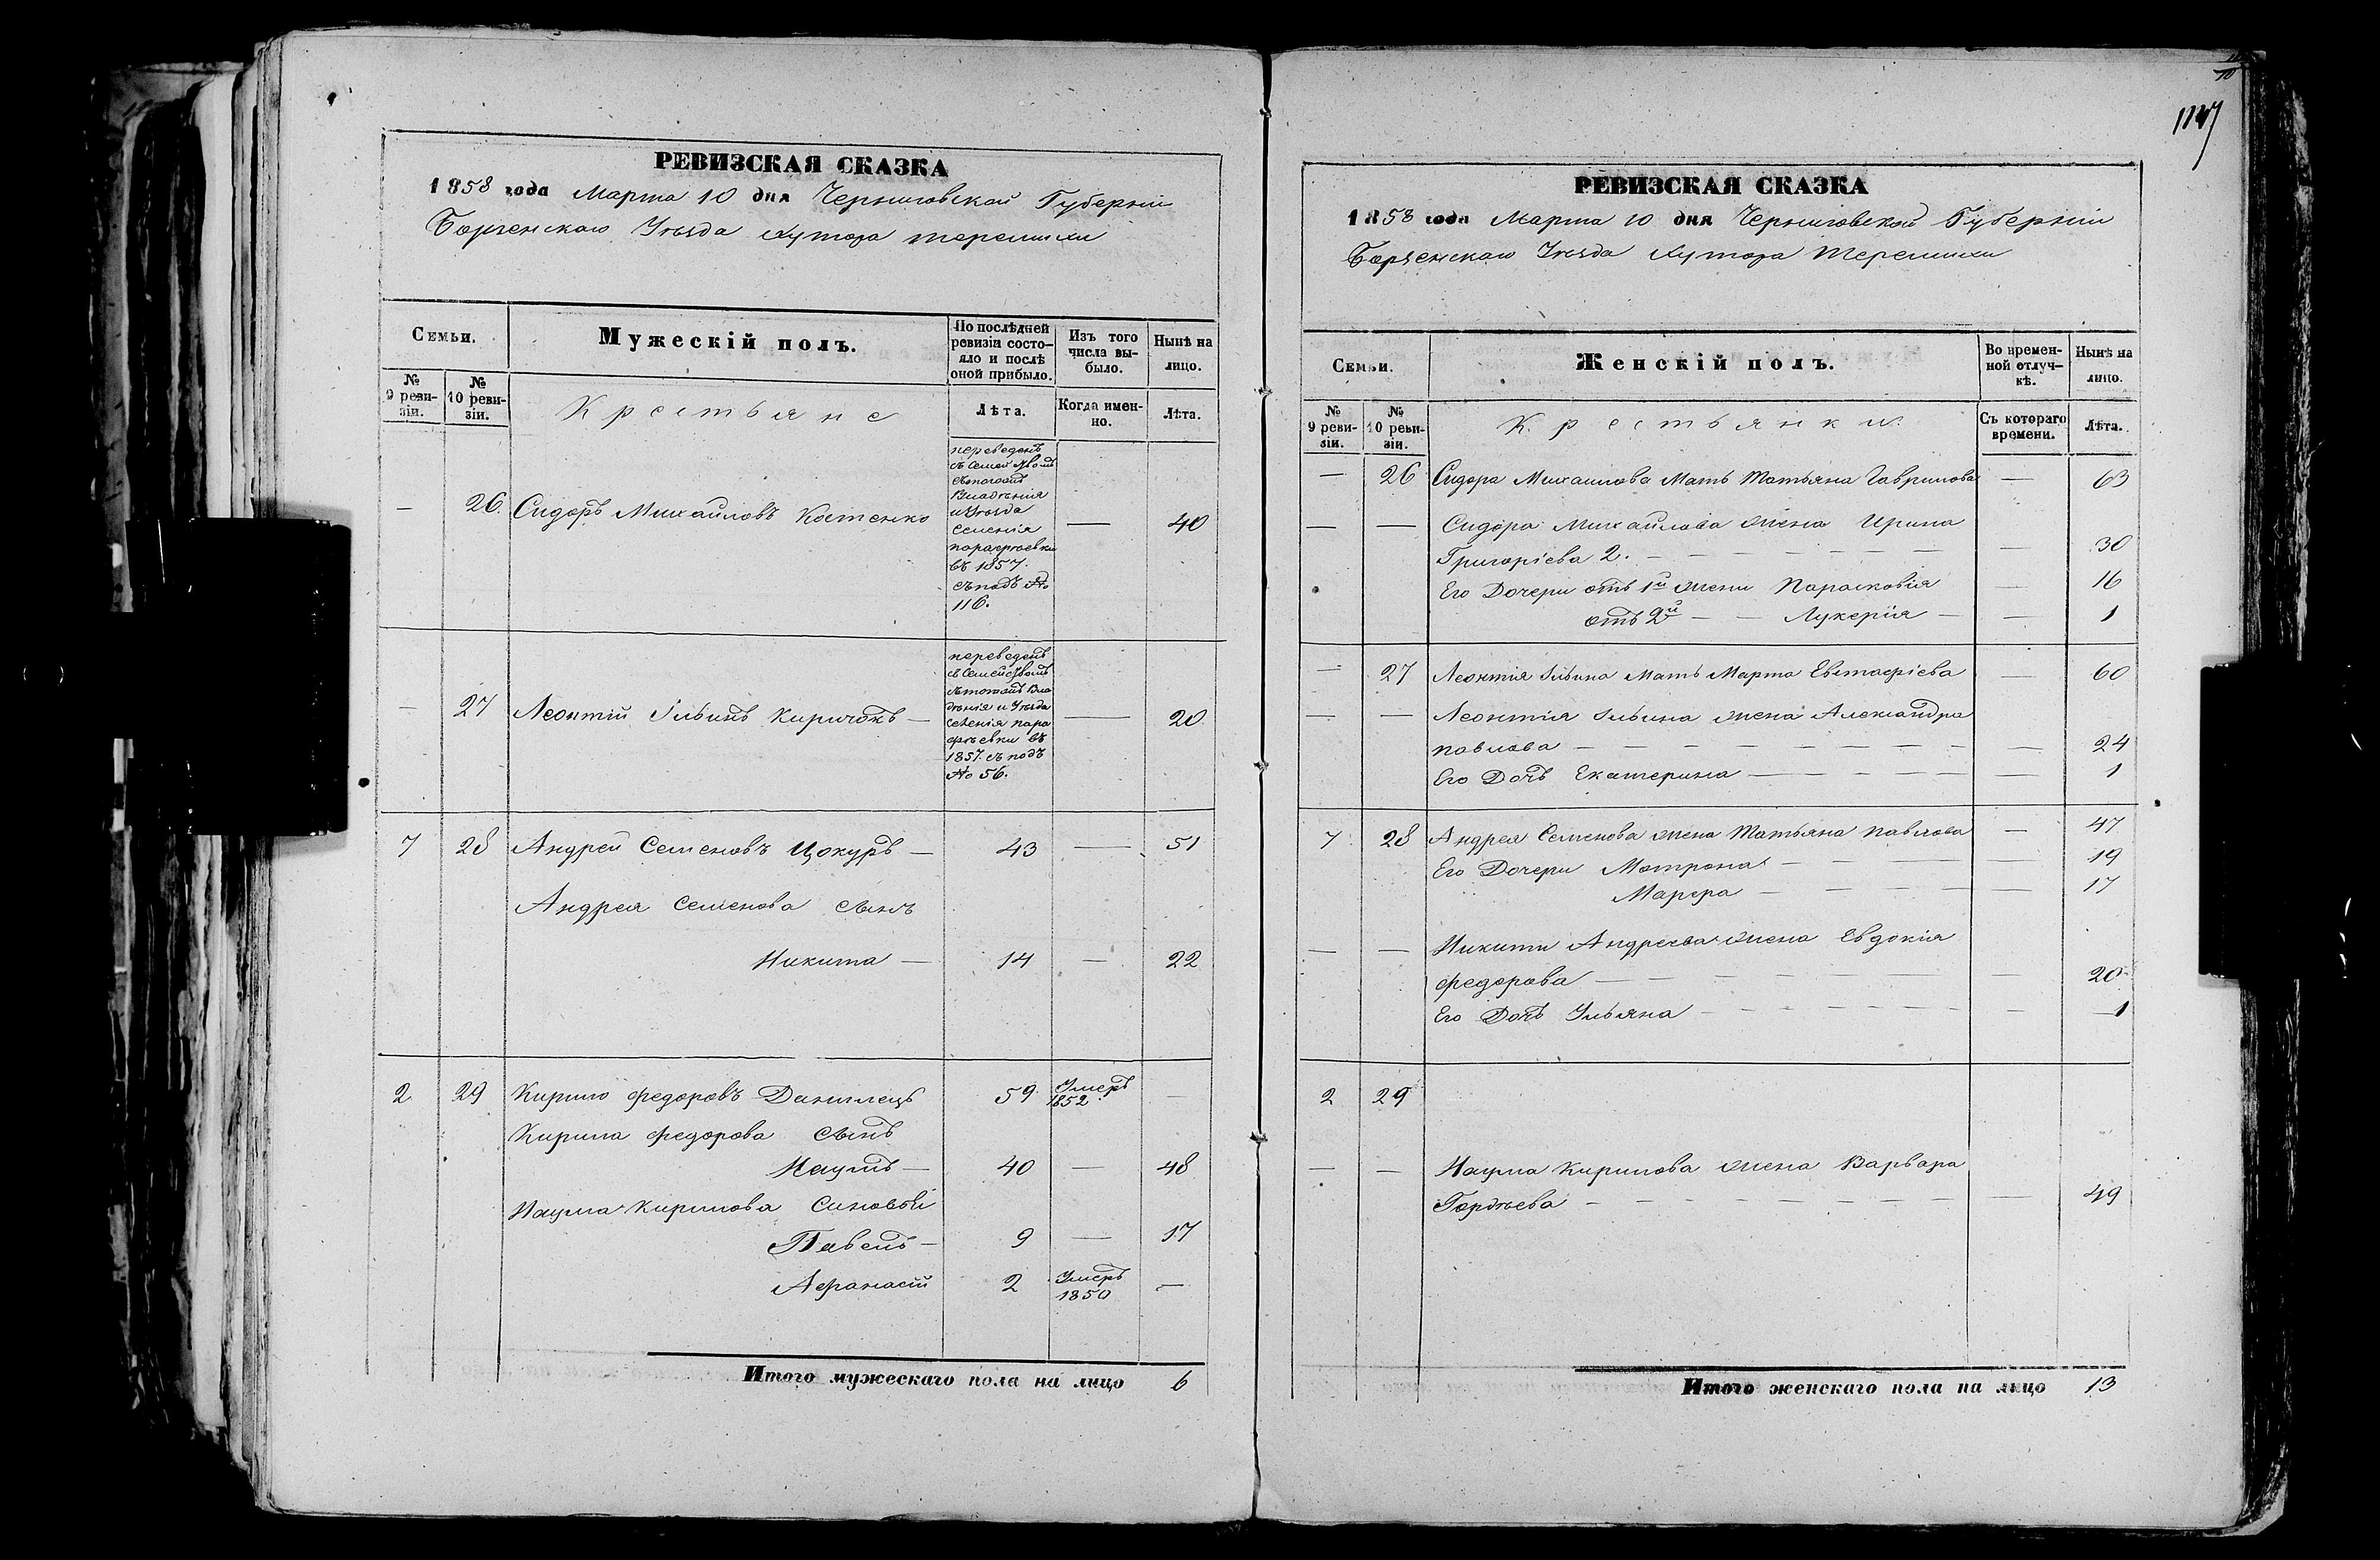 РЕВИЗСКАЯ СКАЗКА
1858 года Марта 10 дня Черниговской Губерніи
Борзенскаго Уѣзда Хутора Терешихи
Семьи.
Мужескій полъ.
По послѣдней
ревизіи состо-
яло и послѣ
оной прибыло.
Изъ того
числа вы-
было.
Нынѣ на
лицо.
№
9 реви-
зіи.
№
10 реви-
зіи.
Крестьяне
Лѣта.
Когда имен-
но.
Лѣта.
— 26. Сидоръ Михайловъ Костенко — 40
переведенъ
съ Семействомъ
Владѣнія
и Уѣзда
Селенія
парафѣевки
въ 1857.
съ подъ №
116.
— 27 Леонтій Ильинъ Киричокъ — — 20
переведенъ
съ Семействомъ
съ тогожъ Вла
дѣнія и Уѣзда
Селенія пара
фѣевки въ
1857. съ подъ
№ 56.
7 28 Андрей Семеновъ Цокуръ — 43 — 51
Андрея Семенова сынъ
Никита — 14 — 22
2 29 Кирило Федоровъ Данилецъ 59. Умеръ 1852. —
Кирила Федорова сынъ
Наумъ — 40 — 48
Наума Кирилова Синовьи
Павелъ — 9 — 17
Афанасій 2 Умеръ 1850 —
Итого мужескаго пола на лицо 6
1117
РЕВИЗСКАЯ СКАЗКА
1858 года Марта 10 дня Черниговской Губерніи
Борзенскаго Уѣзда Хутора Терешихи
Семьи.
Женскій полъ.
Во времен-
ной отлуч-
кѣ.
Нынѣ на
лицо.
№
9 реви-
зіи.
№
10 реви-
зіи.
Крестьянки.
Съ котораго
времени.
Лѣта.
— 26 Сидора Михаилова Мать Татьяна Гаврилова — 63
— — Сидора Михайлова жена Ирина
Григоріева 2. — — 30
Его Дочери отъ 1й жени Парасковія — 16
отъ 2й — — Лукерія — — 1
— 27 Леонтія Ильина Мать Марта Евстафіева — 60
— — Леонтія Ильина жена Александра
павлова — — 24
Его Дочь Екатерина — — 1
7 28 Андрея Семенова жена Татьяна павлова — 47
Его Дочери Мотрона — — 19
Марфа — — 17
— — Никити Андреева жена Евдокія
федорова — — 20
Его Дочь Ульяна — — 1
2 29
— — Наума Кирилова жена Варвара
Гордѣева — — 49
Итого женскаго пола на лицо 13